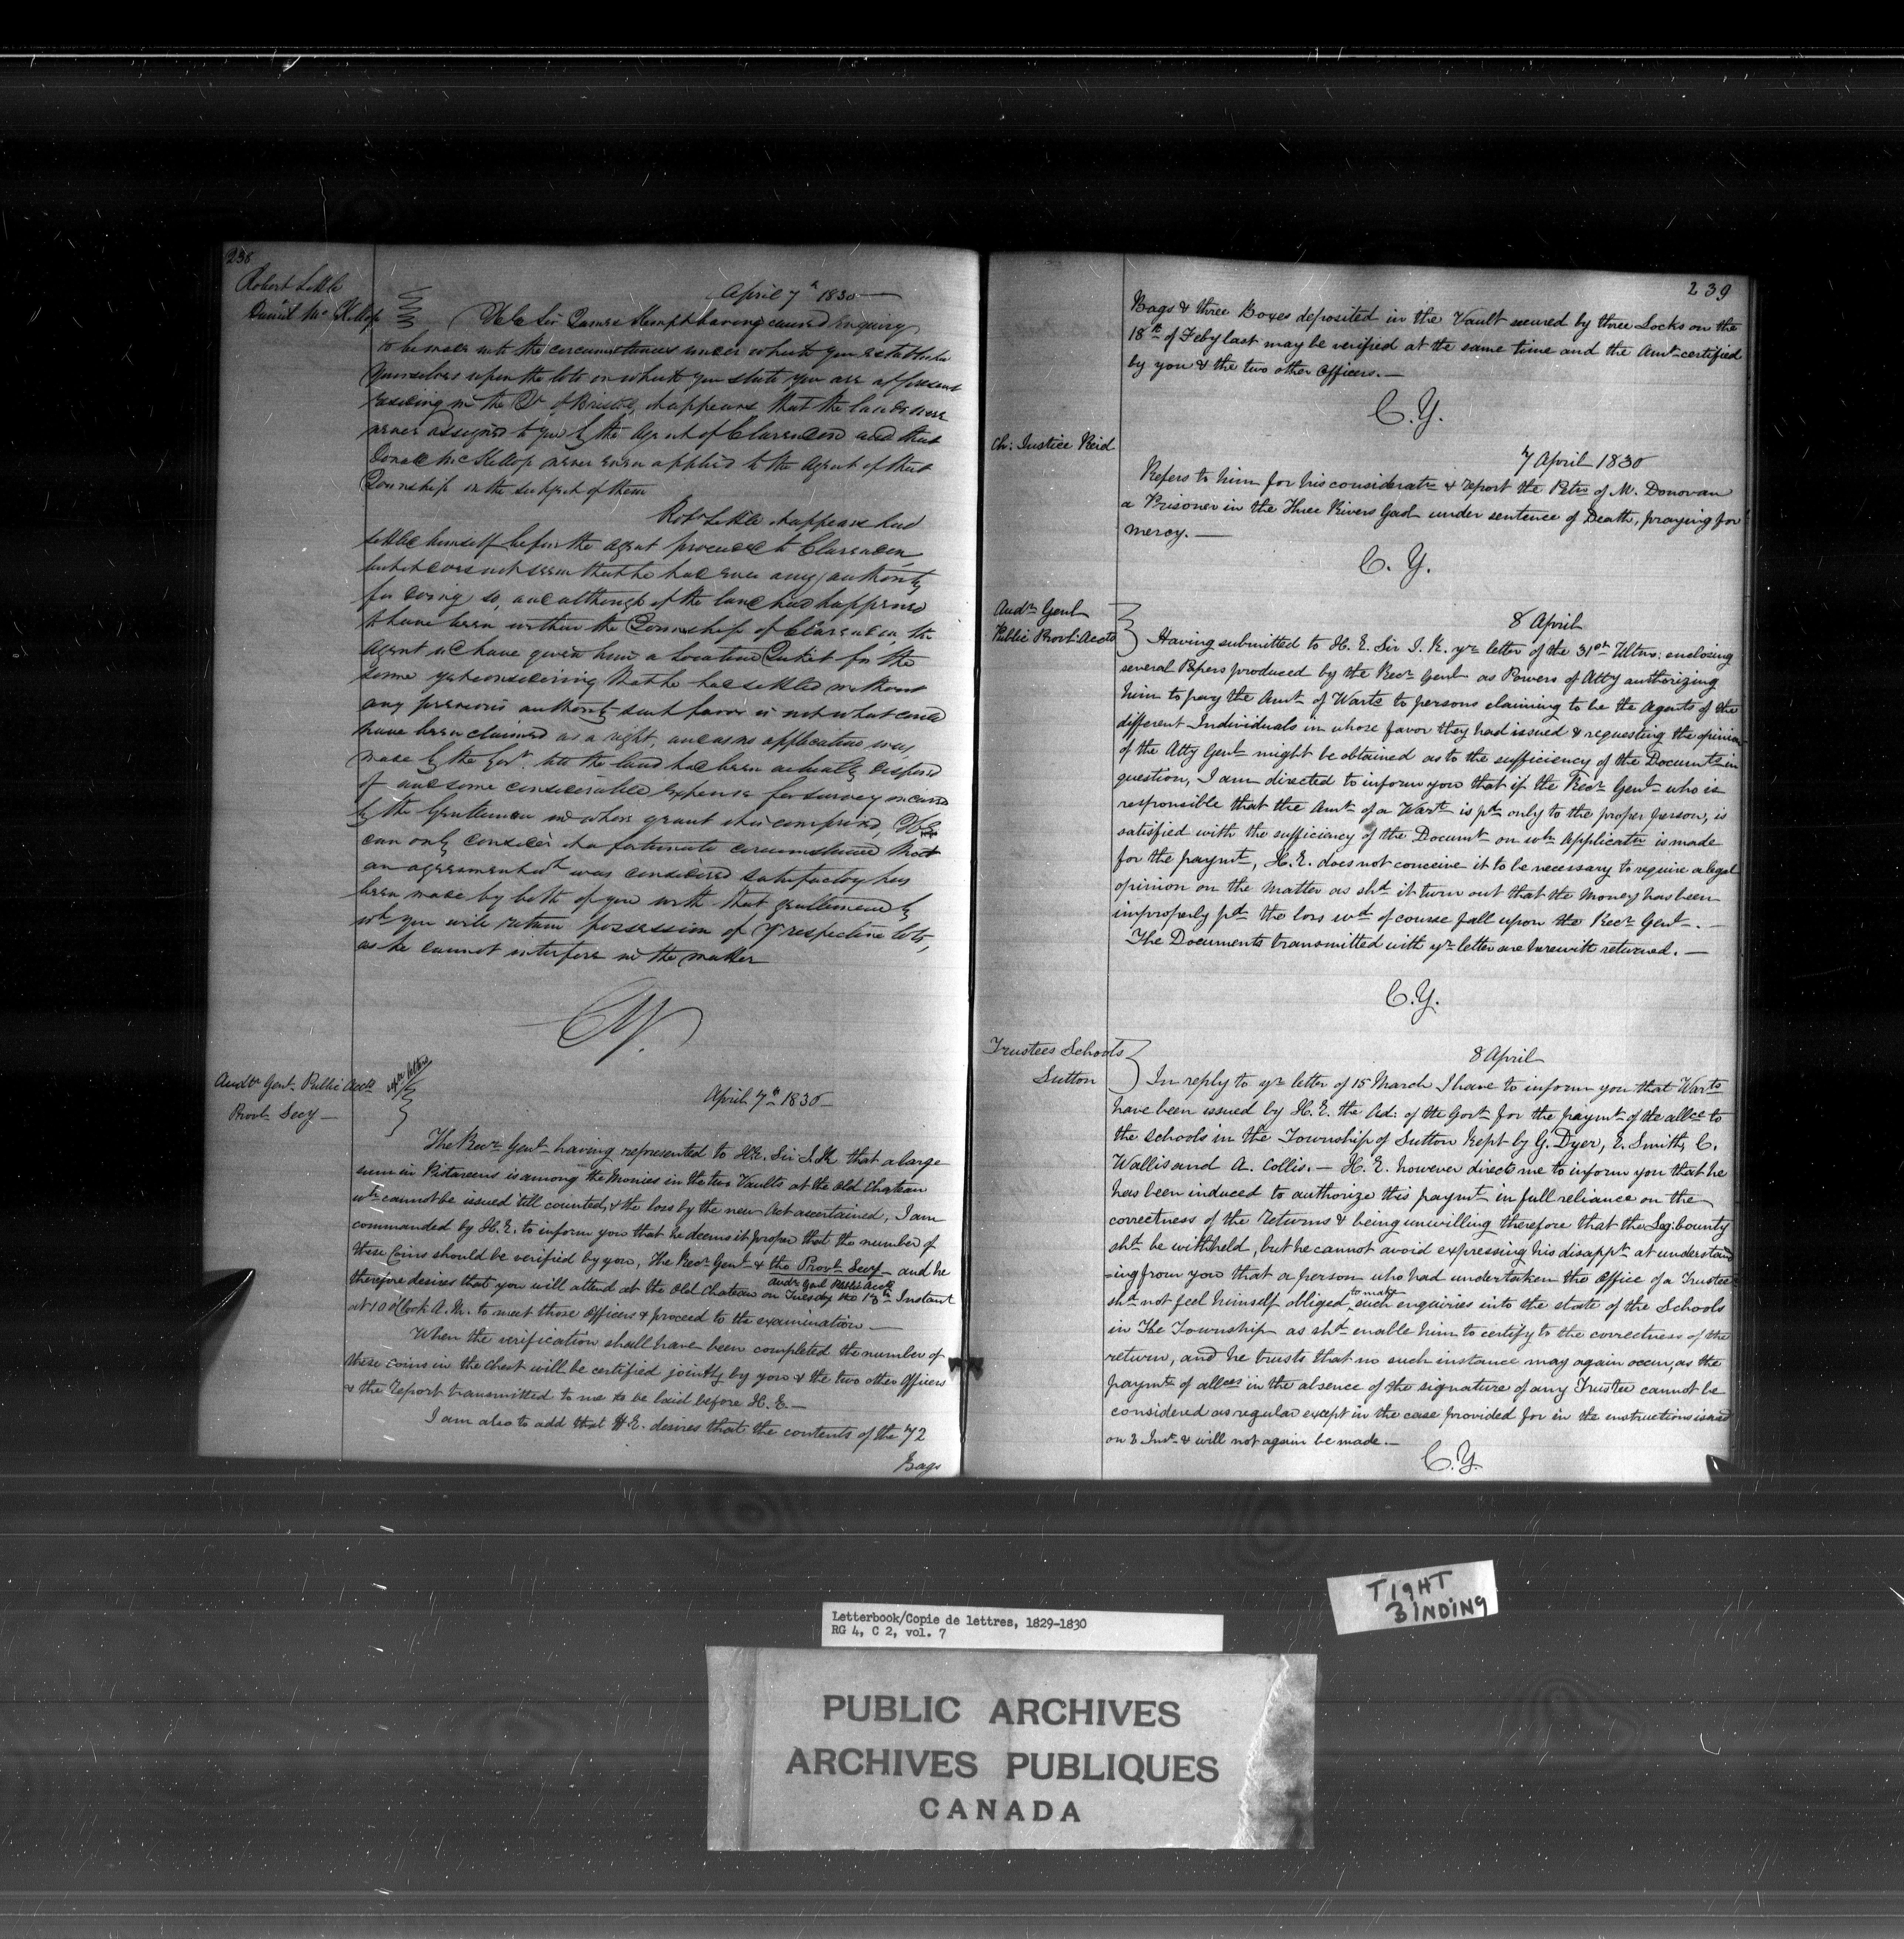 238
Robert Little
Daniel McKillop
April 7th 1830
H.E. Sir James Kempt having caused enquiry
to be made into the circumstances under which you established
yourselves upon the lots on which you state you are at present
residing in the Tp of Bristol, it appears that the lands were
never assigned to you by the Agent of Clarendon and that
Donald McKillop never even applied to the Agent of that
Township on the subject of them
Robt Little it appears had
settled himself before the agent proceeded to Clarendon,
but it does not seem that he had ever any authority
for doing so, and although if the land had happened
to have been within the Township of Clarendon the
agent wd have given him a Location Ticket for the
same yet considering that he had settled without
any previous authority such favor is not what could
have been claimed as a right, and as no application was
made to the Govt till the land had been actually disposed
of and some considerable expense for survey incurred
by the Gentleman in whose grant it is comprised, H.E.
can only consider it a fortunate circumstance that
an agreement wh was considered satisfactory has
been made by both of you with that gentleman by
wh you will retain possession of yr respective lots,
as he cannot interfere in the matter
C.Y.
Audtr Genl Public Accts
Provl Secy
2 letters
April 7th 1830
The Recr Genl having represented to H.E. Sir J. K. that a large
sum in Pistareens is among the Monies in the two Vaults at the Old Chateau
wh cannot be issued till counted, & the loss by the new Act ascertained, I am
commanded by H.E. to inform you that he deems it proper that the number of
these Coins should be verified by you, the Recr Genl & the Provl Secy and he
Audr Genl Public Accts
therefore desires that you will attend at the Old Chateau on Tuesday the 13th Instant
at 10 o'Clock A.M. to meet those Officers & proceed to the examination.—
When the verification shall have been completed the number of
these coins in the Chest will be certified jointly by you & the two other Officers
& the report transmitted to me to be laid before H.E.—
I am also to add that H.E. desires that the contents of the 72
Bags
239
Bags & three Boxes deposited in the Vault secured by three Locks on the
18th of Feby last may be verified at the same time and the Amt certified
by you & the two other Officers.—
C.Y.
Ch: Justice Reid
7 April 1830
Refers to him for his consideratn & report the Petn of M. Donovan
a Prisoner in the Three Rivers Gaol under sentence of Death, praying for
mercy.—
C.Y.
Audr Genl
Public Provl Accts
8 April
Having submitted to H.E. Sir J. K. yr letter of the 31st Ultmo: enclosing
several Papers produced by the Recr Genl as Powers of Atty authorizing
him to pay the Amt of Warts to persons claiming to be the Agents of the
different Individuals in whose favor they had issued & requesting the opinion
of the Atty Genl might be obtained as to the sufficiency of the Documts in
question, I am directed to inform you that if the Recr Genl who is
responsible that the Amt of a Wart is pd only to the proper person, is
satisfied with the sufficiency of the Documt on wh Applicatn is made
for the paymt, H.E. does not conceive it to be necessary to require a legal
opinion on the Matter as shd it turn out that the Money has been
improperly pd the loss wd of course fall upon the Recr Genl.—
The Documents transmitted with yr letter are herewith returned.—
C.Y.
Trustees Schools
Sutton
8 April
In reply to yr letter of 15 March I have to inform you that Warts
have been issued by H.E. the Ad: of the Govt for the paymt of the allce to
the Schools in the Township of Sutton kept by G. Dyer, E. Smith, C.
Wallis and A. Collis.— H.E. however directs me to inform you that he
has been induced to authorize this paymt in full reliance on the
correctness of the returns & being unwilling therefore that the Leg: bounty
shd be withheld, but he cannot avoid expressing his disappt at understand
-ing from you that a person who had undertaken the Office of a Trustee
to make
shd not feel himself obliged such enquiries into the state of the Schools
in the Township as shd enable him to certify to the correctness of the
return, and he trusts that no such instance may again occur, as the
paymt of allces in the absence of the signature of any Trustee cannot be
considered as regular except in the case provided for in the instructions issued
on 3 Inst & will not again be made.—
C.Y.
TIGHT
BINDING
Letterbook/Copie de lettres, 1829-1830
RG 4, C 2, vol. 7
PUBLIC ARCHIVES
ARCHIVES PUBLIQUES
CANADA